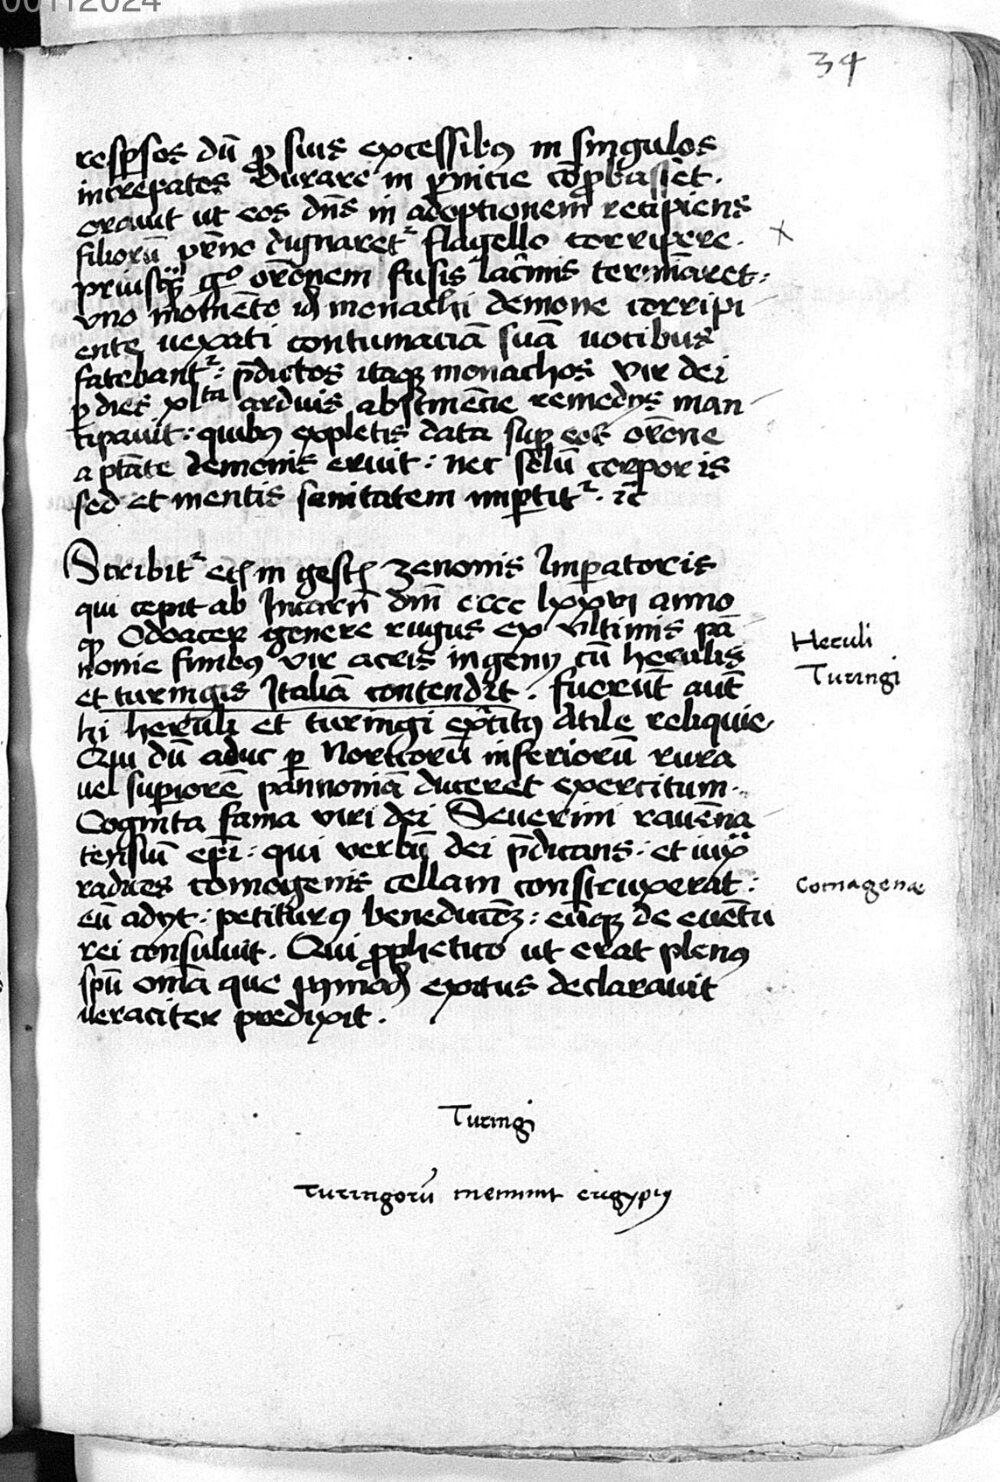 00112024
34
resp̄sos dū ꝓ suis excessibꝫ in singulos
increpatos durare in ꝑnitie cōprobasset.
orauit ut eos dn̄s in adoptionem recipiens
filiorū pr̄no dignaret᷑ flagello corripere.
priusqᷓꝫ gͦ or̄onem fusis lacīmis terminaret:
vno momēto iidē monachi demone corripi
ente uexati contumaciā suā uocibus
fatebant᷑: p̄dictos itaqꝫ monachos vir dei
ꝑ dies xlᵗᵃ arduis abstinēcie remedijs man
cipauit: quibꝫ expletis data suꝑ eos or̄one
a ptāte demonis eruit: nec solū corporis
sed et mentis sanitatem impertit᷑. ⁊c̄
Scribit᷑ eciā in gestis zenonis Imperatoris
qui cepit ab Incarn̄ dn̄i cccc lxxvi anno
qꝫ Odoacer genere rugus ex vltimis pā
nonie finibꝫ vir acris ingenij cū herulis
et turingis Italiā contendit. fuerūt aūt
hi heruli et turingi ex̄citꝫ Atile reliquie
Qui dū aduc ꝑ Noricorū inferiorū rura
uel superiorē pannoniā duceret exercitum.
Cognita fama viri dei Seuerini rauēna
tensiū ep̄i: qui verbū dei p̄dicans: et iuxᷓ
radices comogenis cellam construxerat:
eū adijt: petiturꝫ benedictōꝫ: eūqꝫ de euētu
rei consuluit. Qui ꝓphetico ut erat plenꝫ
sp̄u om̄ia que exitus declarauit
ueraciter predixit.
x
Heruli
Turingi
Comagenae
Turingi
Turingorū meminit eugypiꝫ